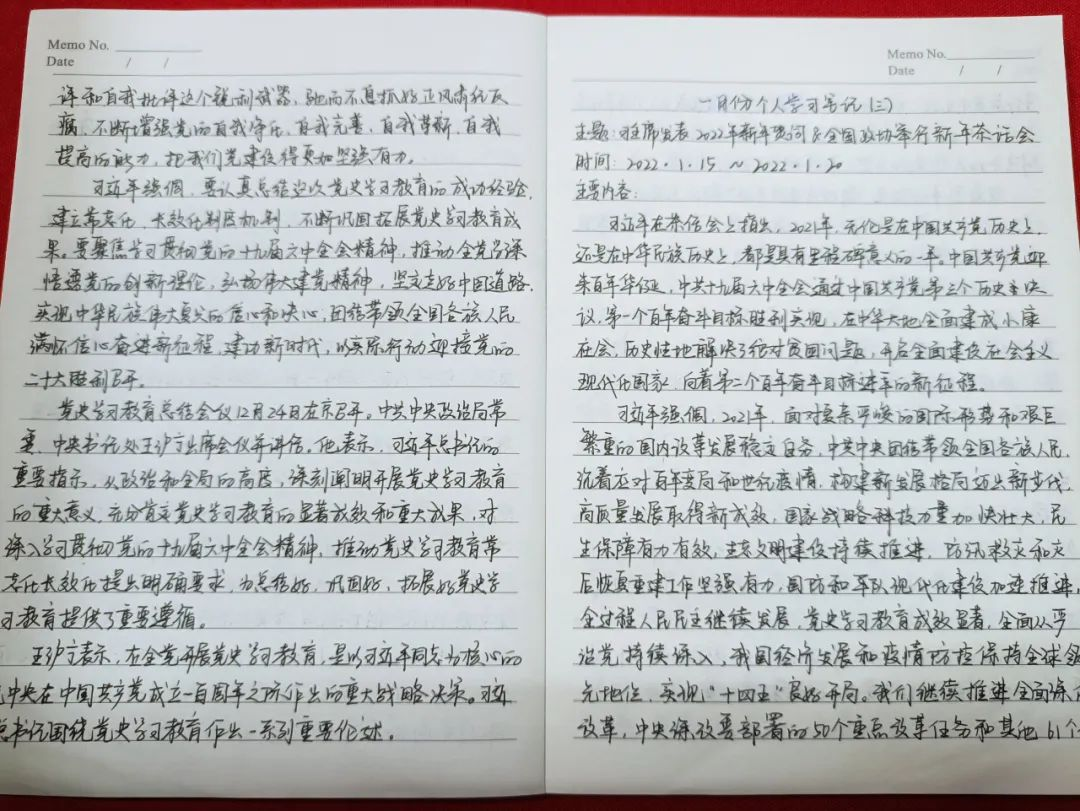 Memo No.
Date / /
评和自我批评这个锐利武器，驰而不息抓好正风肃纪反
腐，不断增强党的自我净化、自我完善、自我革新、自我
提高的能力，把我们党建设得更加坚强有力。
习近平强调，要认真总结这次党史学习教育的成功经验，
建立常态化、长效化制度机制，不断巩固拓展党史学习教育成
果。要聚焦学习贯彻党的十九届六中全会精神，推动全党学深
悟透党的创新理论，弘扬伟大建党精神，坚定走好中国道路、
实现中华民族伟大复兴的信心和决心，团结带领全国各族人民
满怀信心奋进新征程，建功新时代，以实际行动迎接党的
二十大胜利召开。
党史学习教育总结会议12月24日在京召开。中共中央政治局常
委、中央书记处王沪宁出席会议并讲话。他表示，习近平总书记的
重要指示，从政治和全局的高度，深刻阐明开展党史学习教育
的重大意义，充分肯定党史学习教育的显著成效和重大成果，对
深入学习贯彻党的十九届六中全会精神，推动党史学习教育常
态化长效化提出明确要求，为总结好、巩固好、拓展好党史学
习教育提供了重要遵循。
王沪宁表示，在全党开展党史学习教育，是以习近平同志为核心的
党中央在中国共产党成立一百周年之际作出的重大战略决策。习近
总书记围绕党史学习教育作出一系列重要论述。
Memo No.
Date / /
一月份个人学习笔记（三）
主题：习主席发表2022年新年贺词&全国政协举行新年茶话会
时间：2022.1.15 ~ 2022.1.20
主要内容：
习近平在茶话会上指出，2021年，无论是在中国共产党历史上，
还是在中华民族历史上，都是具有里程碑意义的一年。中国共产党迎
来百年华诞，中共十九届六中全会通过中国共产党第三个历史决
议，第一个百年奋斗目标胜利实现，在中华大地全面建成小康
社会，历史性地解决了绝对贫困问题，开启全面建设社会主义
现代化国家、向着第二个百年奋斗目标进军的新征程。
习近平强调，2021年，面对复杂严峻的国际形势和艰巨
繁重的国内改革发展稳定任务，中共中央团结带领全国各族人民，
沉着应对百年变局和世纪疫情，构建新发展格局迈出新步伐，
高质量发展取得新成效，国家战略科技力量加快壮大，民
生保障有力有效，生态文明建设持续推进，防汛救灾和灾
后恢复重建工作坚强有力，国防和军队现代化建设加速推进，
全过程人民民主继续发展，党史学习教育成效显著，全面从严
治党持续深入，我国经济发展和疫情防控保持全球领
先地位，实现“十四五”良好开局。我们继续推进全面深
改革，中央深改委部署的50个重点改革任务和其他61个